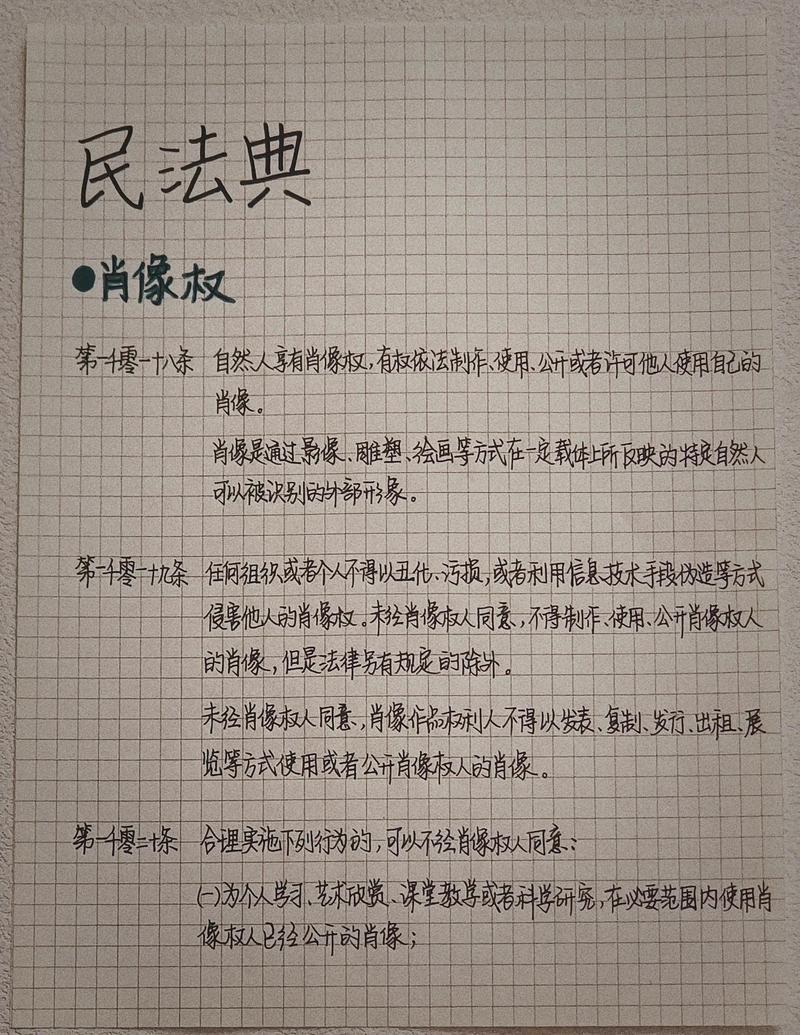 民法典
●肖像权
第一千零一十八条 自然人享有肖像权,有权依法制作、使用、公开或者许可他人使用自己的
肖像。
肖像是通过影像、雕塑、绘画等方式在一定载体上所反映的特定自然人
可以被识别的外部形象。
第一千零一十九条 任何组织或者个人不得以丑化、污损,或者利用信息技术手段伪造等方式
侵害他人的肖像权。未经肖像权人同意,不得制作、使用、公开肖像权人
的肖像,但是法律另有规定的除外。
未经肖像权人同意,肖像作品权利人不得以发表、复制、发行、出租、展
览等方式使用或者公开肖像权人的肖像。
第一千零二十条 合理实施下列行为的,可以不经肖像权人同意:
(一)为个人学习、艺术欣赏、课堂教学或者科学研究,在必要范围内使用肖
像权人已经公开的肖像;